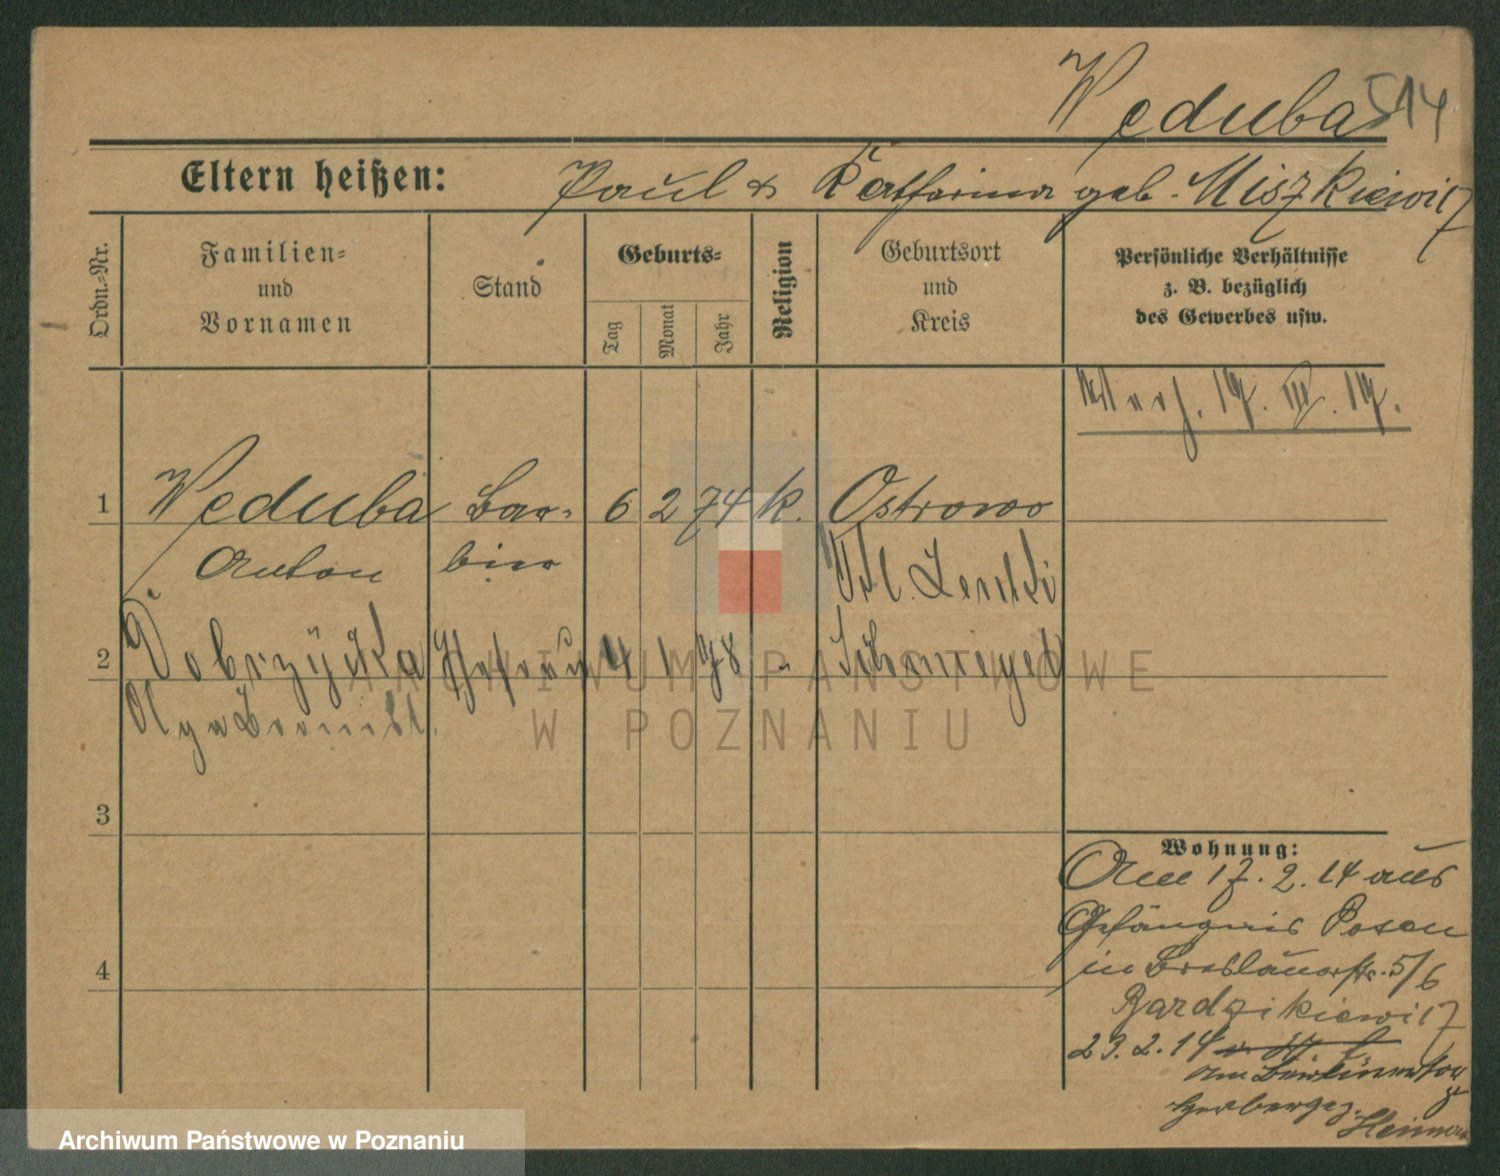 Weduba 514
Eltern heißen: Paul & Katharina geb. Miszkiewitz
Ordn.-Nr.
Familien-
und
Vornamen
Stand
Geburts-
Tag
Monat
Jahr
Religion
Geburtsort
und
Kreis
Persönliche Verhältnisse
z. B. bezüglich
des Gewerbes usw.
19. III. 19.
1 Weduba Bar- 6 2 74 k. Ostrowo
Anton bier
2 Dobrzycka Ehefrau 4 1 78 "
3
4
Wohnung:
Am 17.2.14 aus
Gefängnis Posen
in Breslauerstr. 5/6
Bardzikiewitz
23.2.14
am Berlinertor
Herberge z.
Heimat
ARCHIWUM PAŃSTWOWE
W POZNANIU
Archiwum Państwowe w Poznaniu